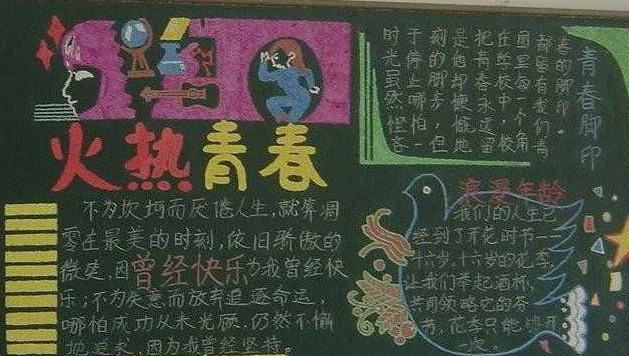 火热青春
不为坎坷而厌倦人生,就算凋
零在最美的时刻,依旧骄傲的
微笑,因曾经快乐为我曾经快
乐;不为失意而放弃追逐命运,
哪怕成功从未光顾,仍然不懈
地追求,因为我曾经坚持。
青春脚印
春的脚印。
都留有我们青
园里每一个角
在学校中,校
把青春永远留
是他却慷慨地
刻的脚步,但
于停上哪怕一
时光虽然怪吝
浪漫年龄
我们的人生已
经到了开花时节一
十六岁。十六岁的花季,
让我们举起酒杯,
共同领略它的芬
芳,花季只能绽开
一次。